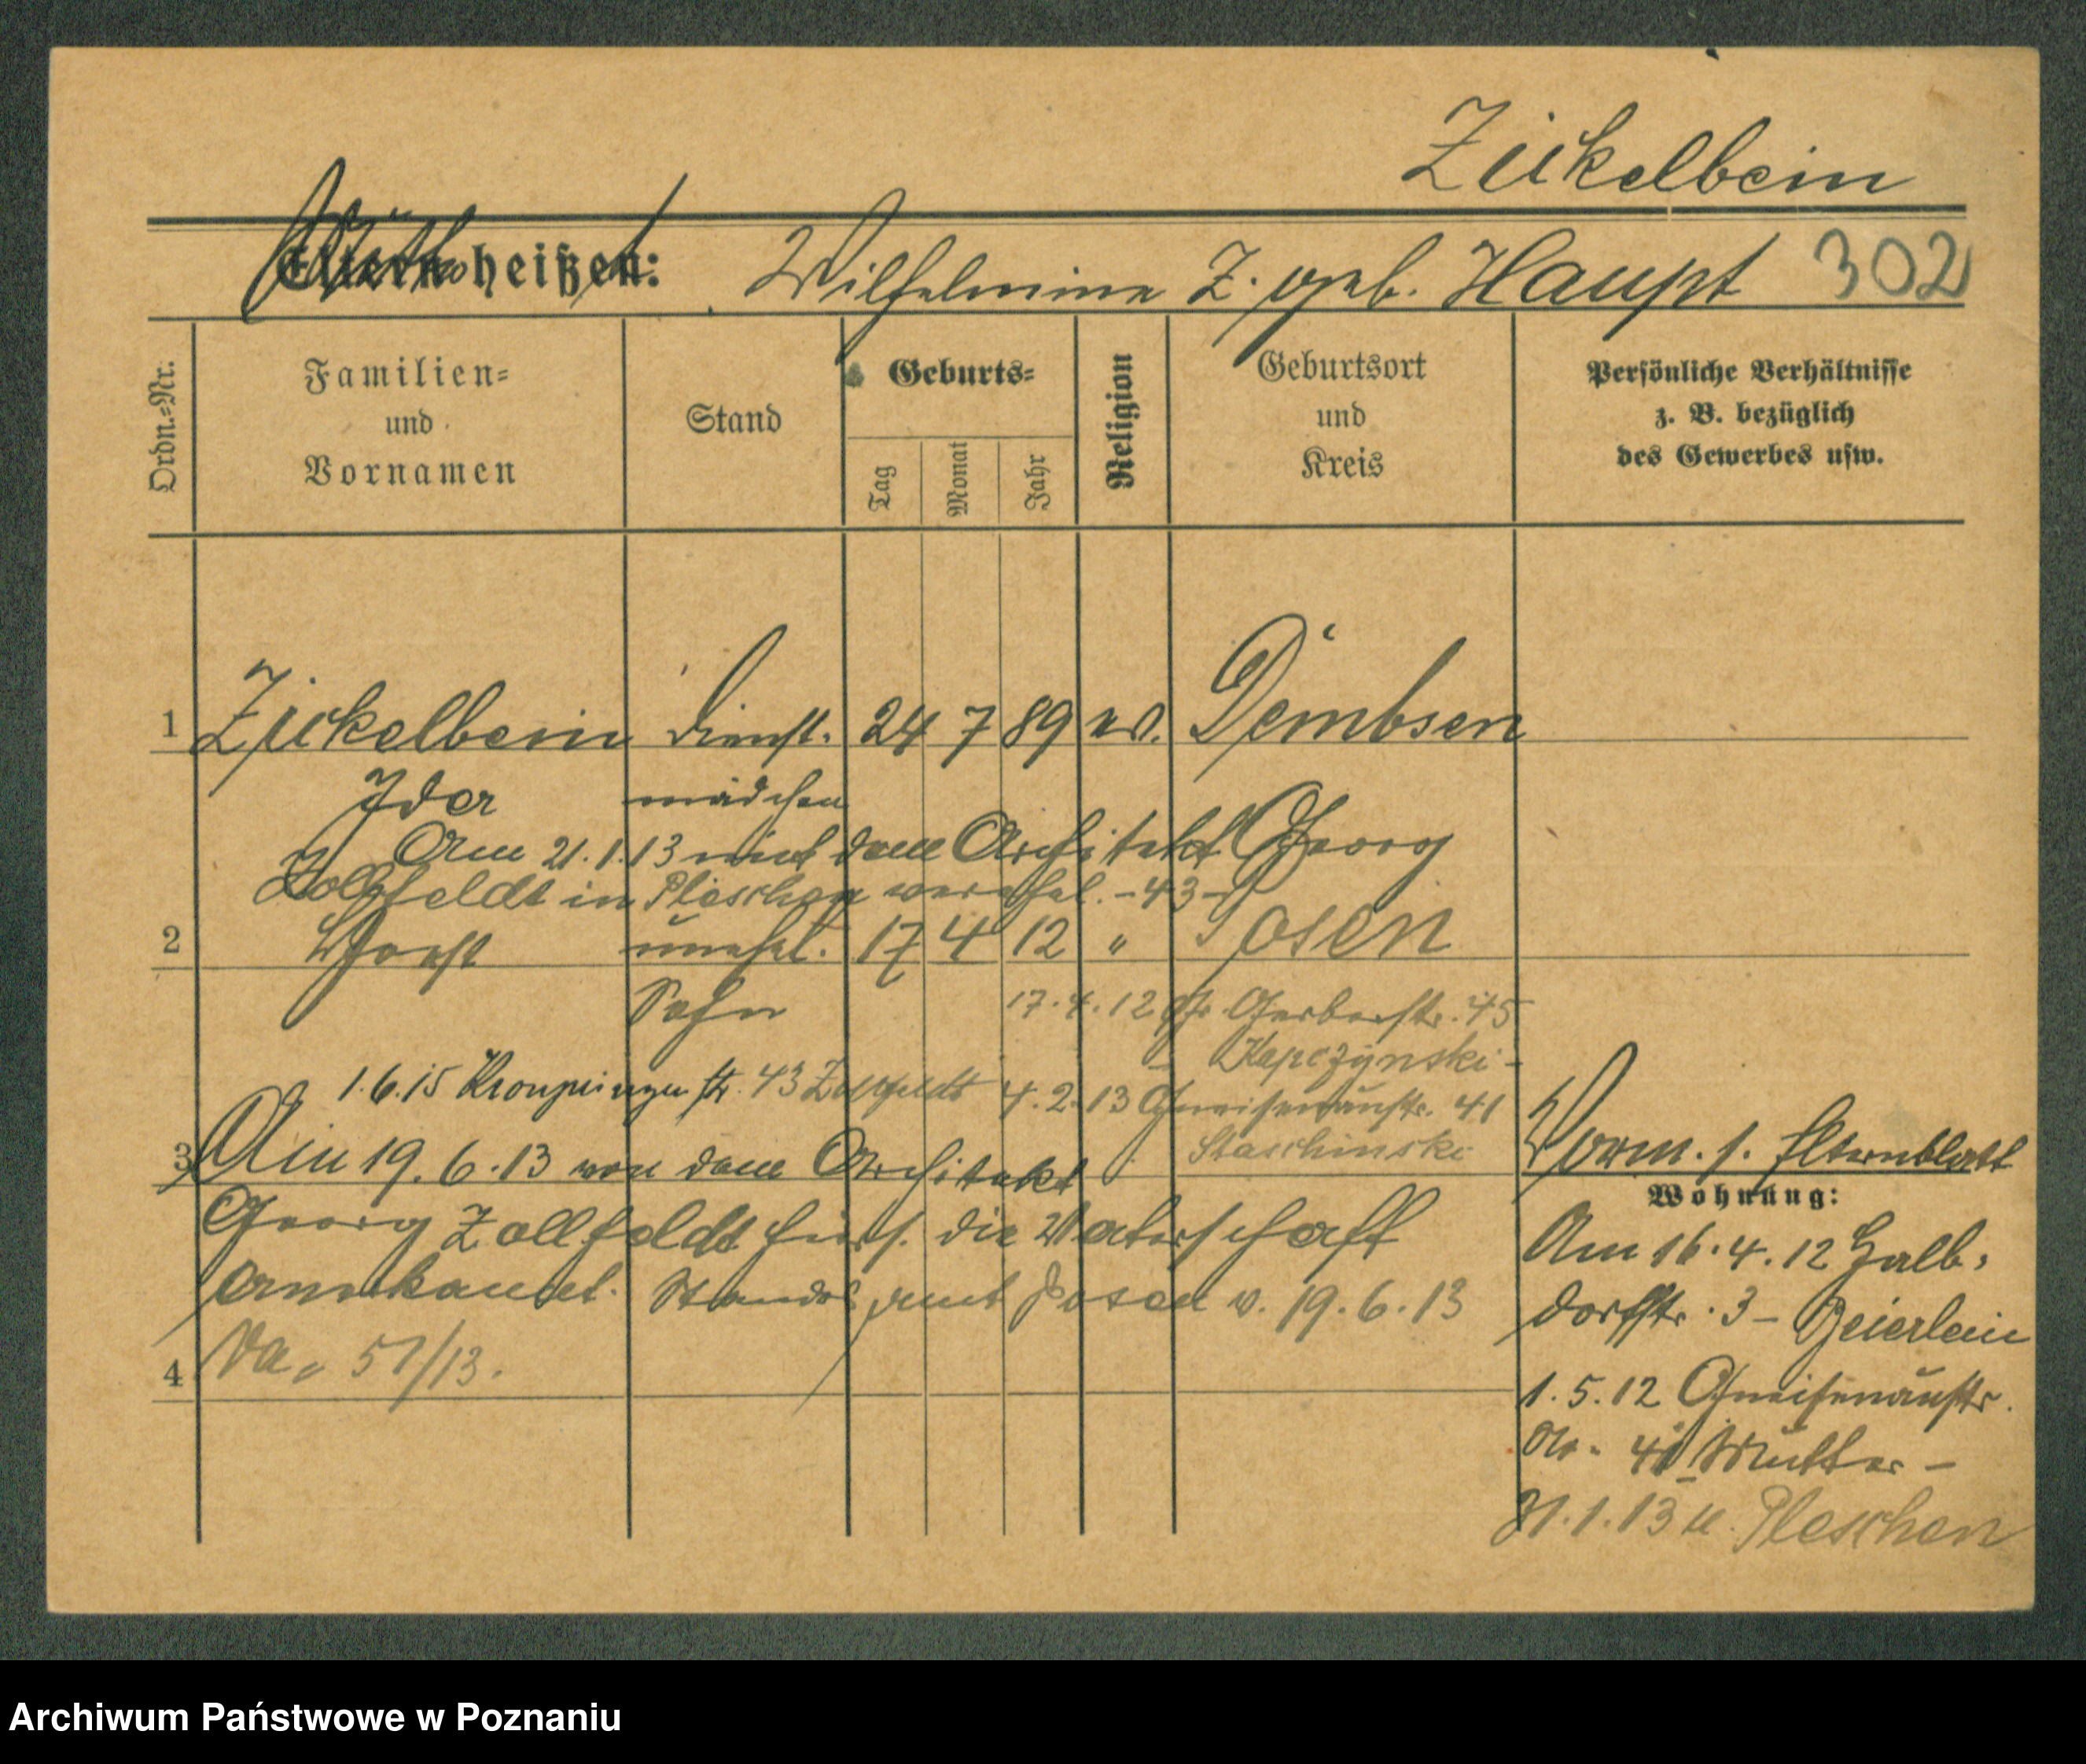 Zickelbein
Mutter heißt:
Eltern heißen: Wilhelmine Z. geb. Haupt 302
Ordn.-Nr.
Familien- und Vornamen
Stand
Geburts-
Tag
Monat
Jahr
Religion
Geburtsort und Kreis
Persönliche Verhältnisse
z. B. bezüglich
des Gewerbes usw.
1 Zickelbein Dienst- 24 7 89 ev. Dembsen
Ida mädchen
Am 21.1.13 mit dem Architekt Georg
Zollfeldt in Pleschen verehel. - 43 -
2 Horst unehel. 17 4 12 " Posen
Sohn 17.4.12 Gr. Gerberstr. 45
- Kapczynski -
1.6.15 Kronprinzenstr. 43 Zollfeldt 4.2.13 Gneisenaustr. 41
Staschinski
3 Am 19.6.13 von dem Architekt
Georg Zollfeldt hins. die Vaterschaft
anerkannt. Standesamt Posen v. 19.6.13
Va. 51/13.
4
Verm. s. Elternblatt
Wohnung:
Am 16.4.12 Halb-
dorfstr. 3 - Beierlein
1.5.12 Gneisenaustr.
Nr. 41 Mutter -
31.1.13 n. Pleschen
Archiwum Państwowe w Poznaniu